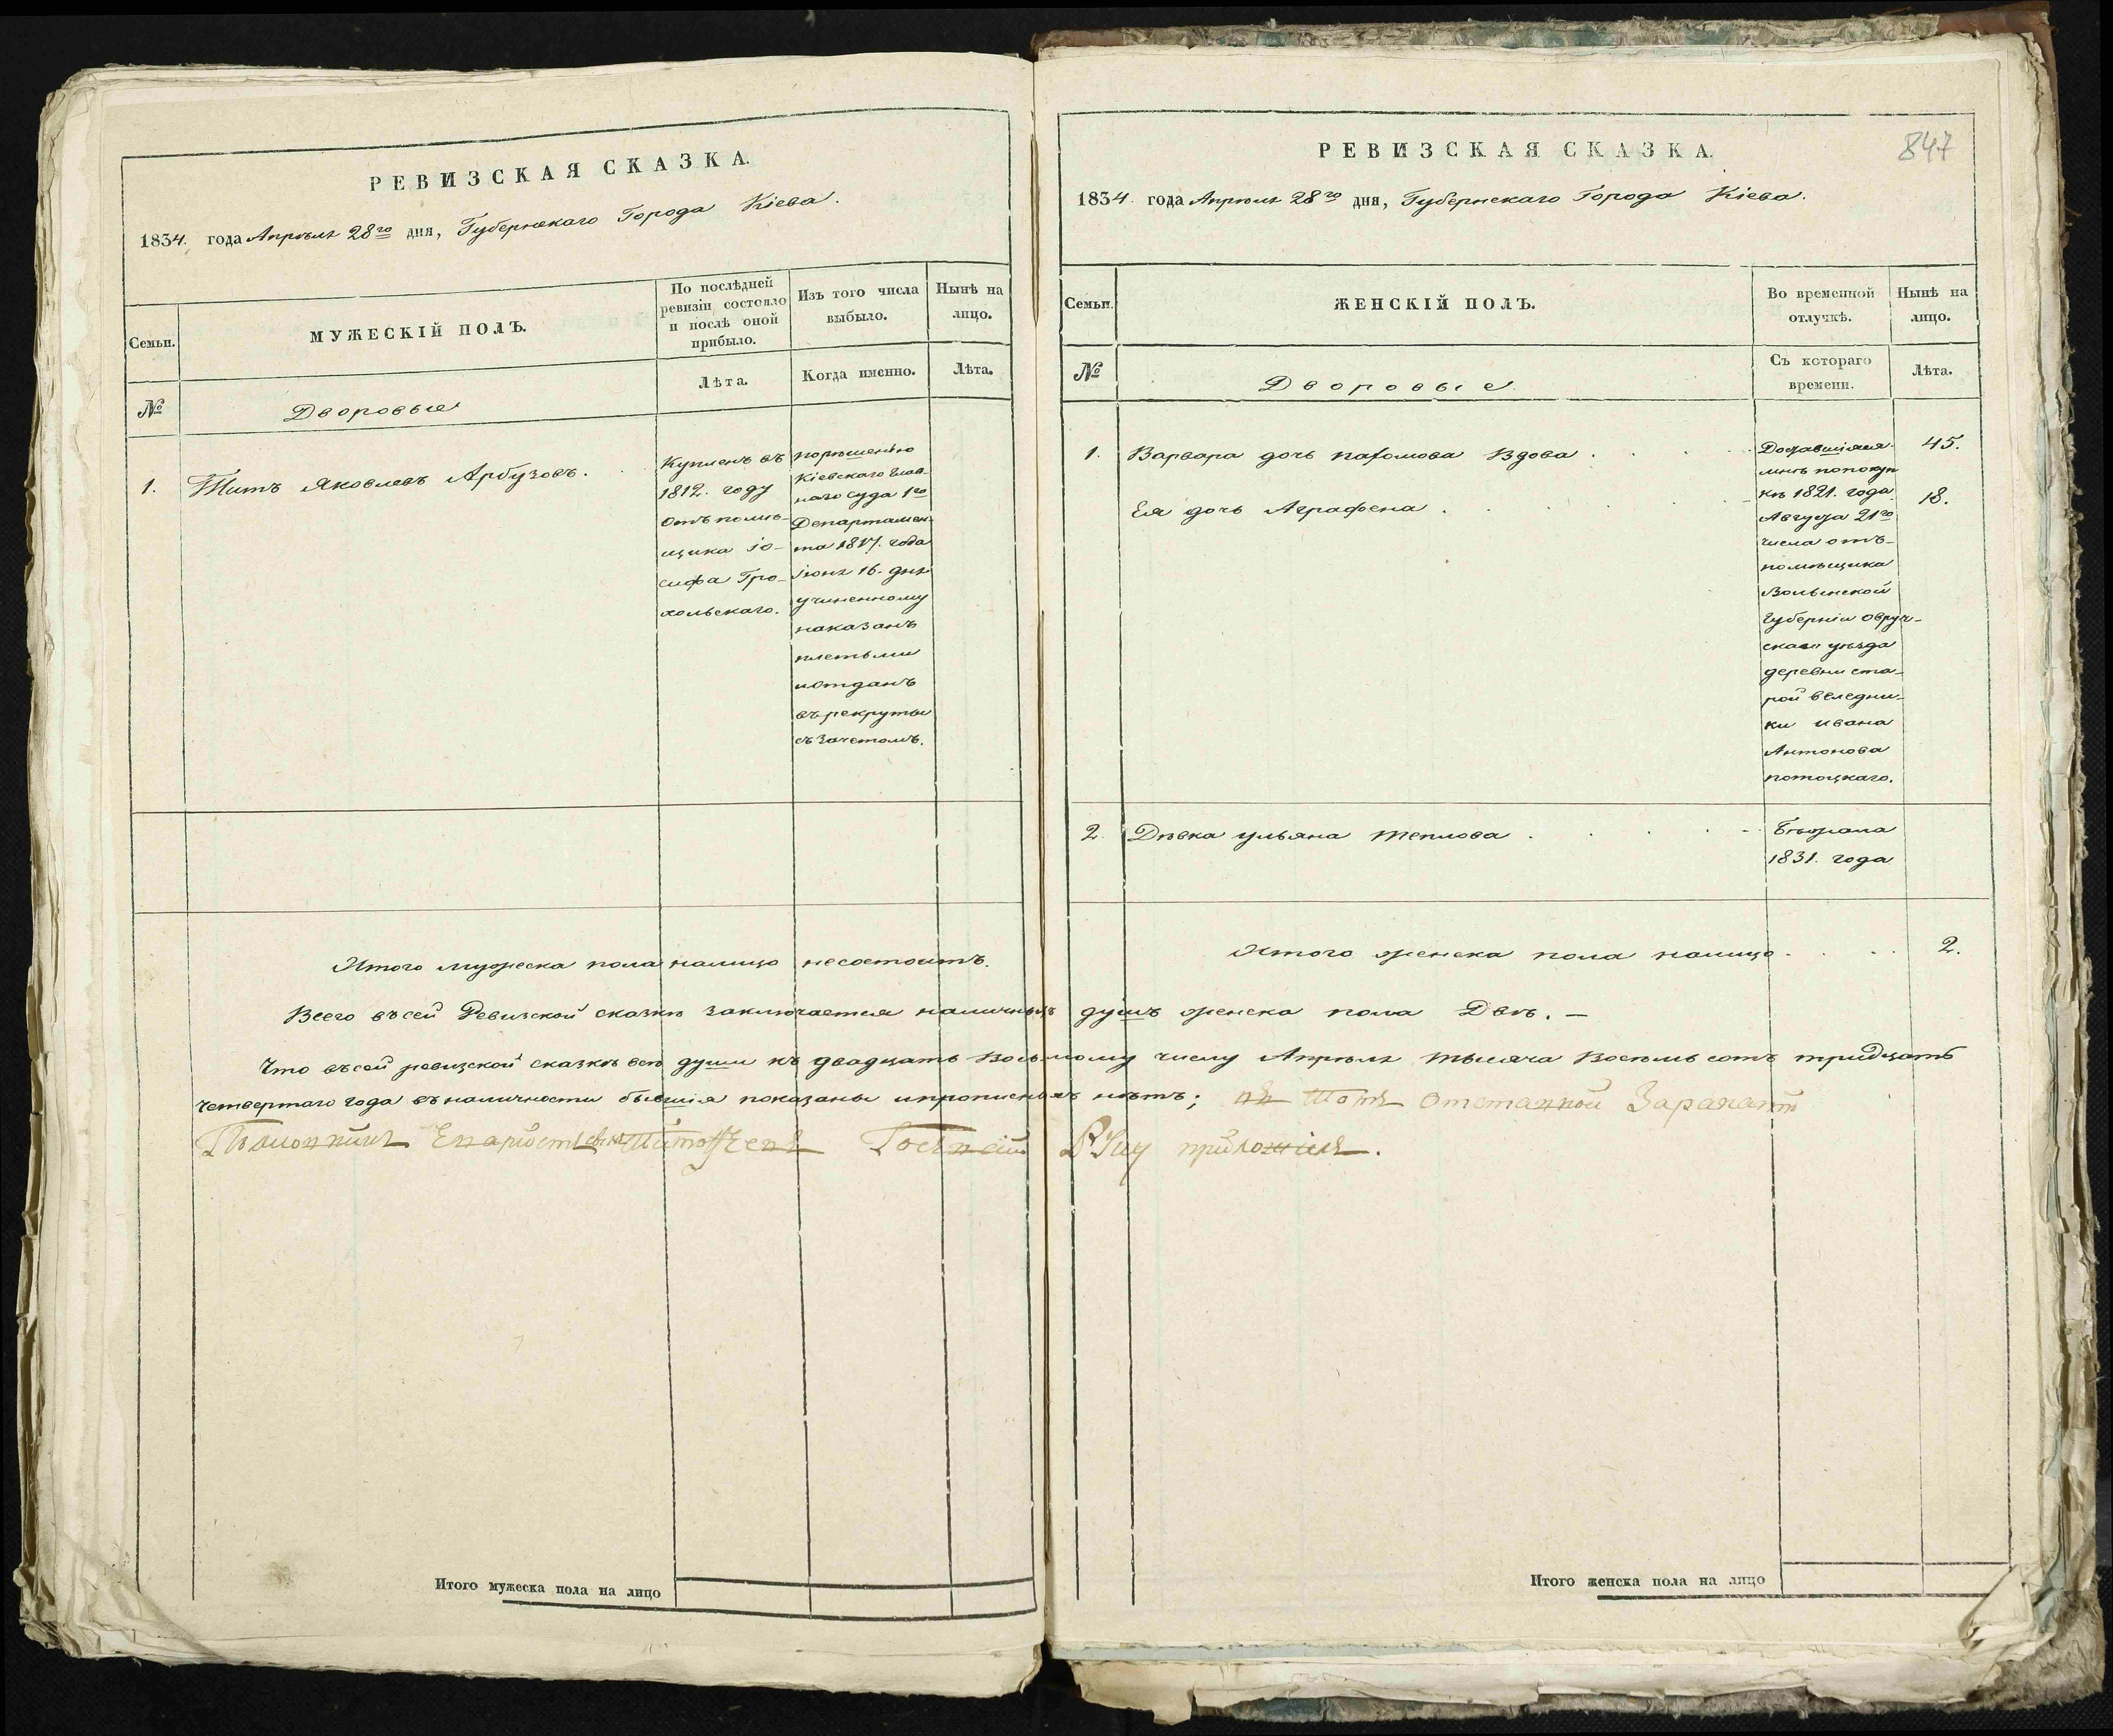 РЕВИЗСКАЯ СКАЗКА.
1834. года Апрѣля 28го дня, Губернскаго Города Кіева.
Семьи.
МУЖЕСКІЙ ПОЛЪ.
По послѣдней
ревизіи состояло
и послѣ оной
прибыло.
Изъ того числа
выбыло.
Нынѣ на
лицо.
№
Дворовые
Лѣта.
Когда именно.
Лѣта.
1.
Титъ Яковлевъ Арбузовъ.
Купленъ въ
1812. году
отъ помѣ-
щика Іо-
сифа Гро-
хольскаго.
порѣшенію
Кіевскаго Глав-
наго Суда 1го
Департамен-
та 1817. года
Іюня 16. дня
учиненному
наказанъ
плетьми
иотданъ
въ рекруты
съ зачетомъ.
Итого мужеска пола налицо несостоитъ.
847
РЕВИЗСКАЯ СКАЗКА.
1834. года Апрѣля 28го дня, Губернскаго Города Кіева.
Семьи.
ЖЕНСКІЙ ПОЛЪ.
Во временной
отлучкѣ.
Нынѣ на
лицо.
№
Дворовые
Съ котораго
времени.
Лѣта.
1. Варвара дочь пахомова Вдова
45.
Ея дочь Аграфена
18.
Доставшіяся
мнѣ попокуп
кѣ 1821. года
Августа 21го
числа отъ
помѣщика
Волынской
Губерніи овруч-
скаго уѣзда
деревни ста-
рой веледни-
ки ивана
Антонова
потоцкаго.
2. Дѣвка ульяна теплова
бѣжала
1831. года
Итого женска пола налицо 2.
Всего въсей Ревизской сказкѣ заключается наличныхъ душъ женска пола Двѣ. —
Что въсей ревизской сказкѣ всѣ души къ двадцать Восьмому числу Апрѣля тысяча Восемь сотъ тридцать
четвертаго года въналичности бывшія показаны ипрописныхъ нѣтъ;
Итого мужеска пола на лицо
Итого женска пола на лицо